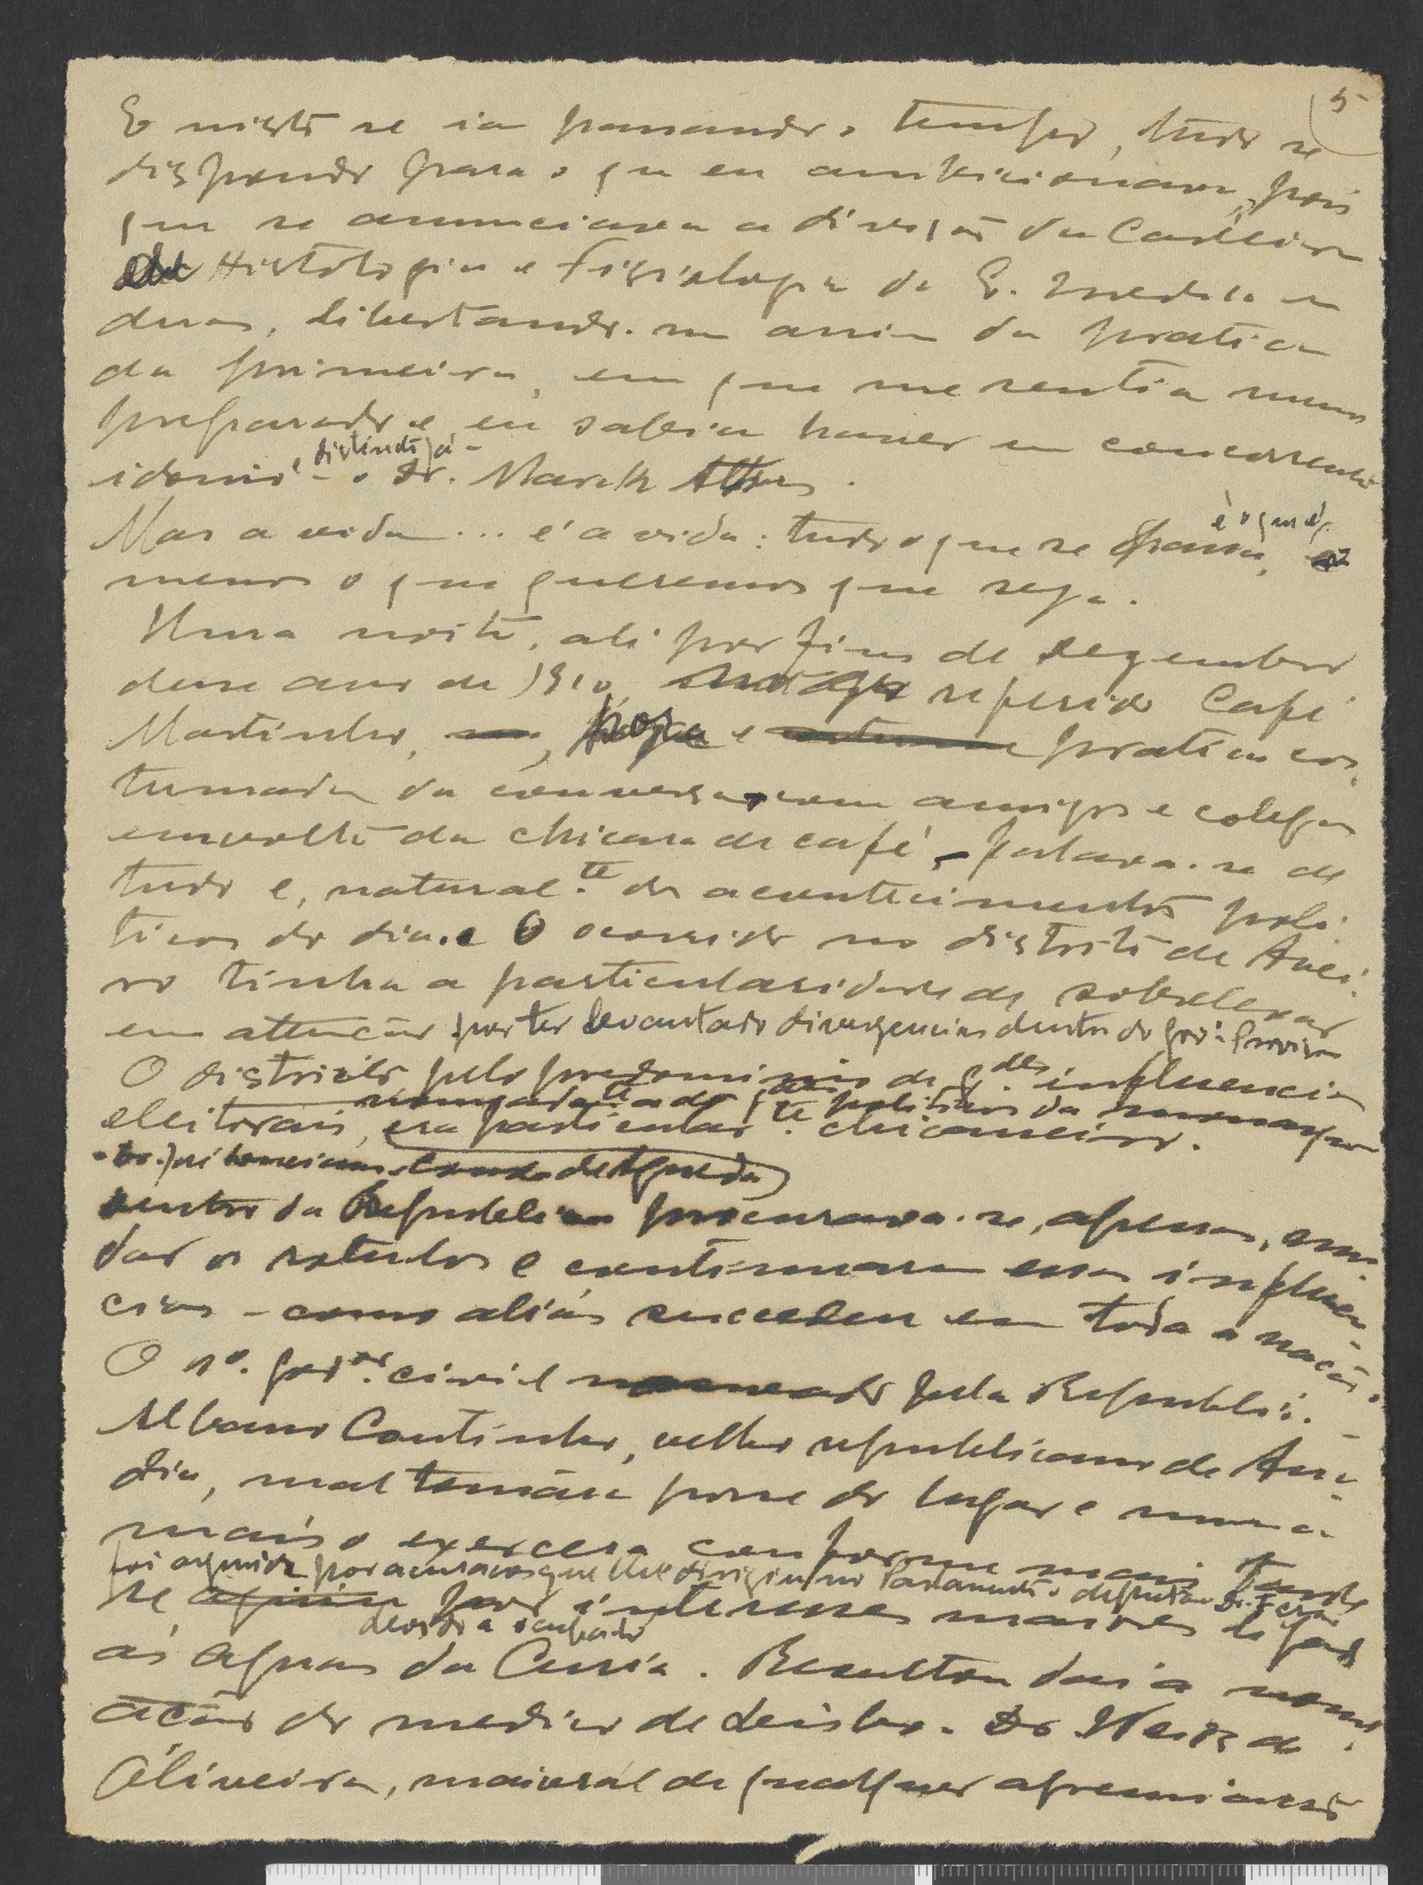 5
E nisto se ia passando o tempo, tudo se
dispondo para o que eu ambicionava, pois
que se anunciava a divisão da Cadeira
de Histologia e Fisiologia da E. Medica em
duas, libertando-me assim da pratica
da primeira, em que me sentia menos
preparado e eu sabia haver um concorrente
idoneo e distinto já - o Dr. Marck Athias.
Mas a vida... é a vida: tudo o que se passa, é o que é,
menos o que queremos que seja.
Uma noite, ali por fins de dezembro
desse ano de 1910, referido Café
Martinho, e pratica cos-
tumada da conversa com amigos e colegas
em volta da chicara de café, falava-se de
tudo e, natural.te dos acontecimentos poli-
ticos do dia. O ocorrido no distrito de Avei-
ro tinha a particularidade de sobrelevar
em attenção por ter levantado divergencias dentro do Gov.o Provisor
O districto, pelo predominio de g.des influencias
eleitorais, era particular.te chicaneiro.
dentro da Republica procurava-se, apenas, mu-
dar os rotulos e continuarem essas influen-
cias - como aliás succedeu em toda a nação.
O 1º. gov.or civil pela Republica
Albano Coutinho, velho republicano da Ana-
dia, mal tomára posse do lugar e nunca
mais o exercera conforme mais tarde
foi arguido por acusações que lhe dirigiu no Parlamento o deputado
se por interesses maiores ligados
ás Aguas da Curia. Resultou daí a nome-
ação do medico de Leislre. Dr. Weiss de
Oliveira, maioral de qualquer apreniamento